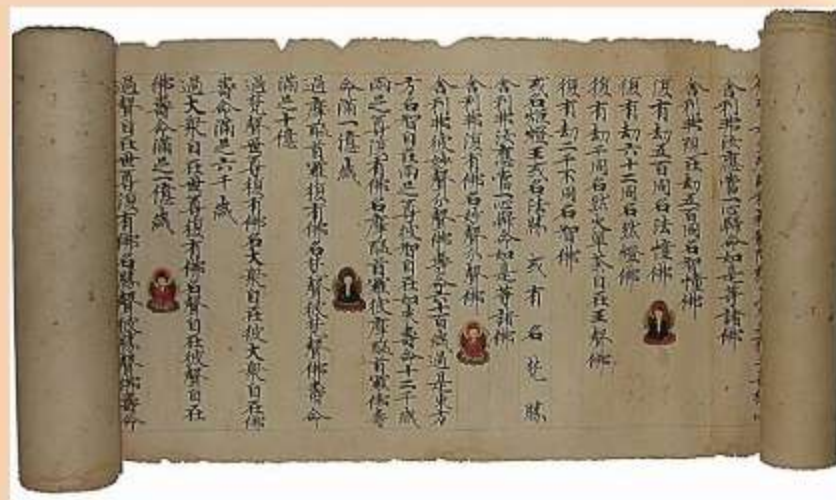 舍利弗汝應當一心歸命如是等諸佛
舍利弗現在劫五百同名智幢佛
復有劫五百同名法幢佛
復有劫六十二同名然燈佛
復有劫千同名然火單荼自在王聲佛
復有劫二千不同名智佛
或名燈燈王或名法勝 或有名梵勝
舍利弗汝應當一心歸命如是等諸佛
舍利弗復有佛名妙聲分聲佛
舍利弗彼妙聲分聲佛壽命六十百歲過是東方
方名智自在而是尊彼智自在如來壽命十二千歲
尊復有佛名摩醯首羅彼摩醯首羅佛壽
命滿一億歲
過摩醯首羅復有佛名梵聲彼梵聲佛壽命
滿足十億
過梵聲世尊復有佛名大衆自在彼大衆自在佛
壽命滿足六千歲
過大衆自在世尊復有佛名聲自在彼聲自在
佛壽命滿足一億歲
過聲自在世尊復有佛名勝聲彼勝聲佛壽命